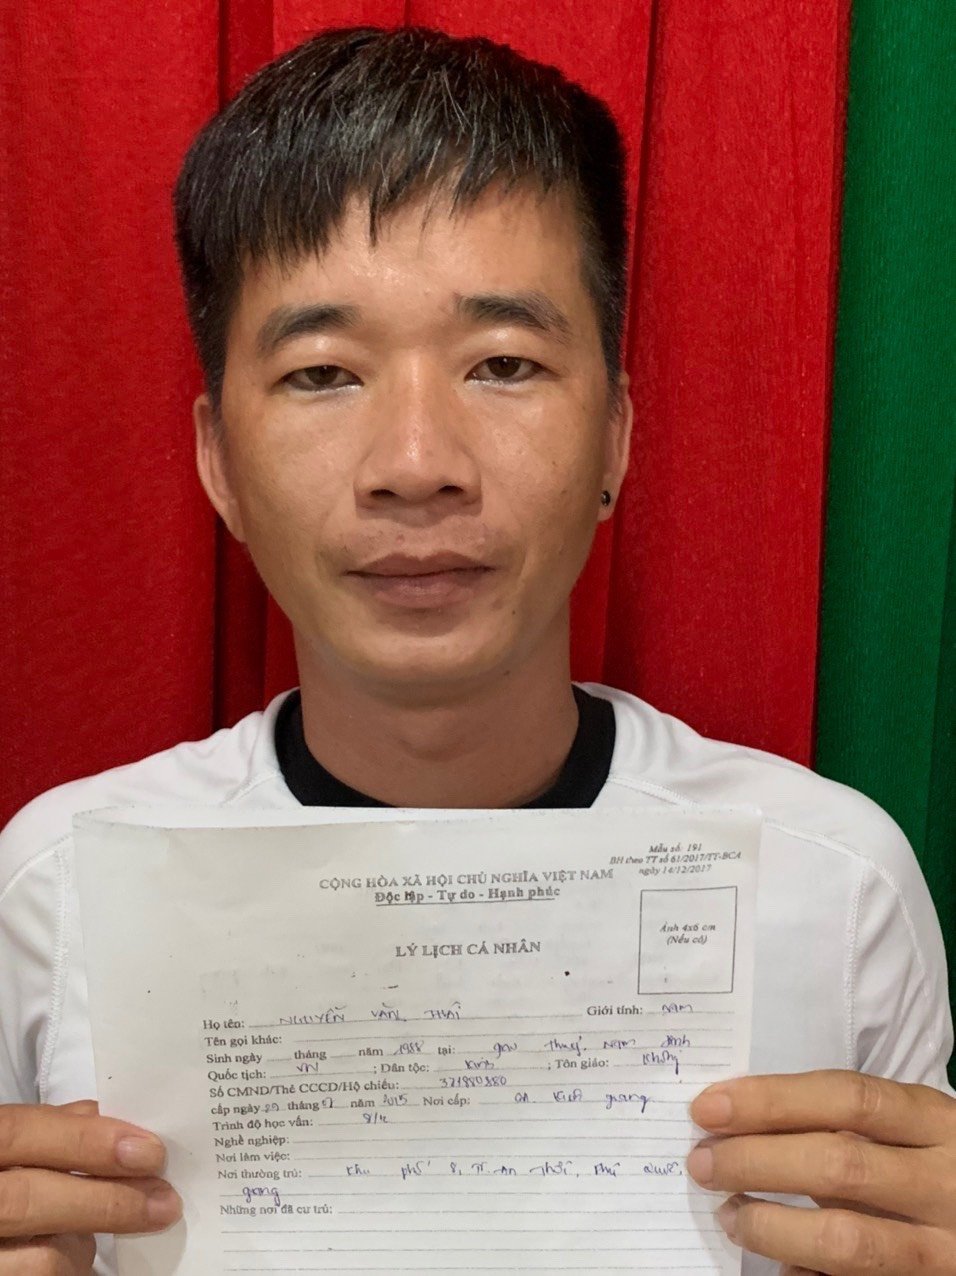 Mẫu số: 191
BH theo TT số 61/2017/TT-BCA
ngày 14/12/2017
CỘNG HÒA XÃ HỘI CHỦ NGHĨA VIỆT NAM
Độc lập - Tự do - Hạnh phúc
Ảnh 4x6 cm
(Nếu có)
LÝ LỊCH CÁ NHÂN
Họ tên: NGUYỄN VĂN Giới tính: Nam
Tên gọi khác:
Sinh ngày tháng năm 1988 tại: giao thuỷ, Nam định
Quốc tịch: VN ; Dân tộc: Kinh ; Tôn giáo: Không
Số CMND/Thẻ CCCD/Hộ chiếu:
cấp ngày tháng năm 2015 Nơi cấp: CA. Kiên giang
Trình độ học vấn: 8/12
Nghề nghiệp:
Nơi làm việc:
Nơi thường trú: Khu phố 8, TT. An Thới, Phú Quốc,
giang
Những nơi đã cư trú: